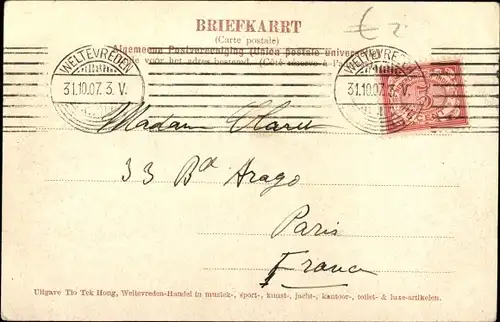 BRIEFKARRT
(Carte postale)
£ 2
Algemeene Postvereeniging (Union postale universelle)
voor het adres bestemd. (Côté réservé à l'a
WELTEVREDEN
31.10.07. 3. V.
WELTEVREDEN
31.10.07. 3. V.
Madam
33 Bd Arago
Paris
France
Uitgave Tio Tek Hong, Weltevreden-Handel in muziek-, sport-, kunst-, jacht-, kantoor-, toilet- & luxe-artikelen.